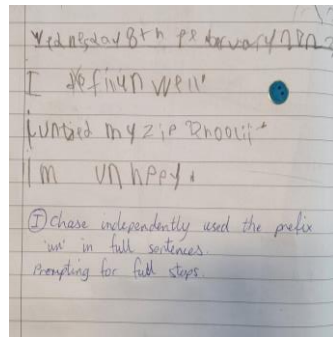 Wednesday 8th February
I well
I untied my zip
Im unhppy.
I Chase independently used the prefix
'un' in full sentences.
Prompting for full stops.